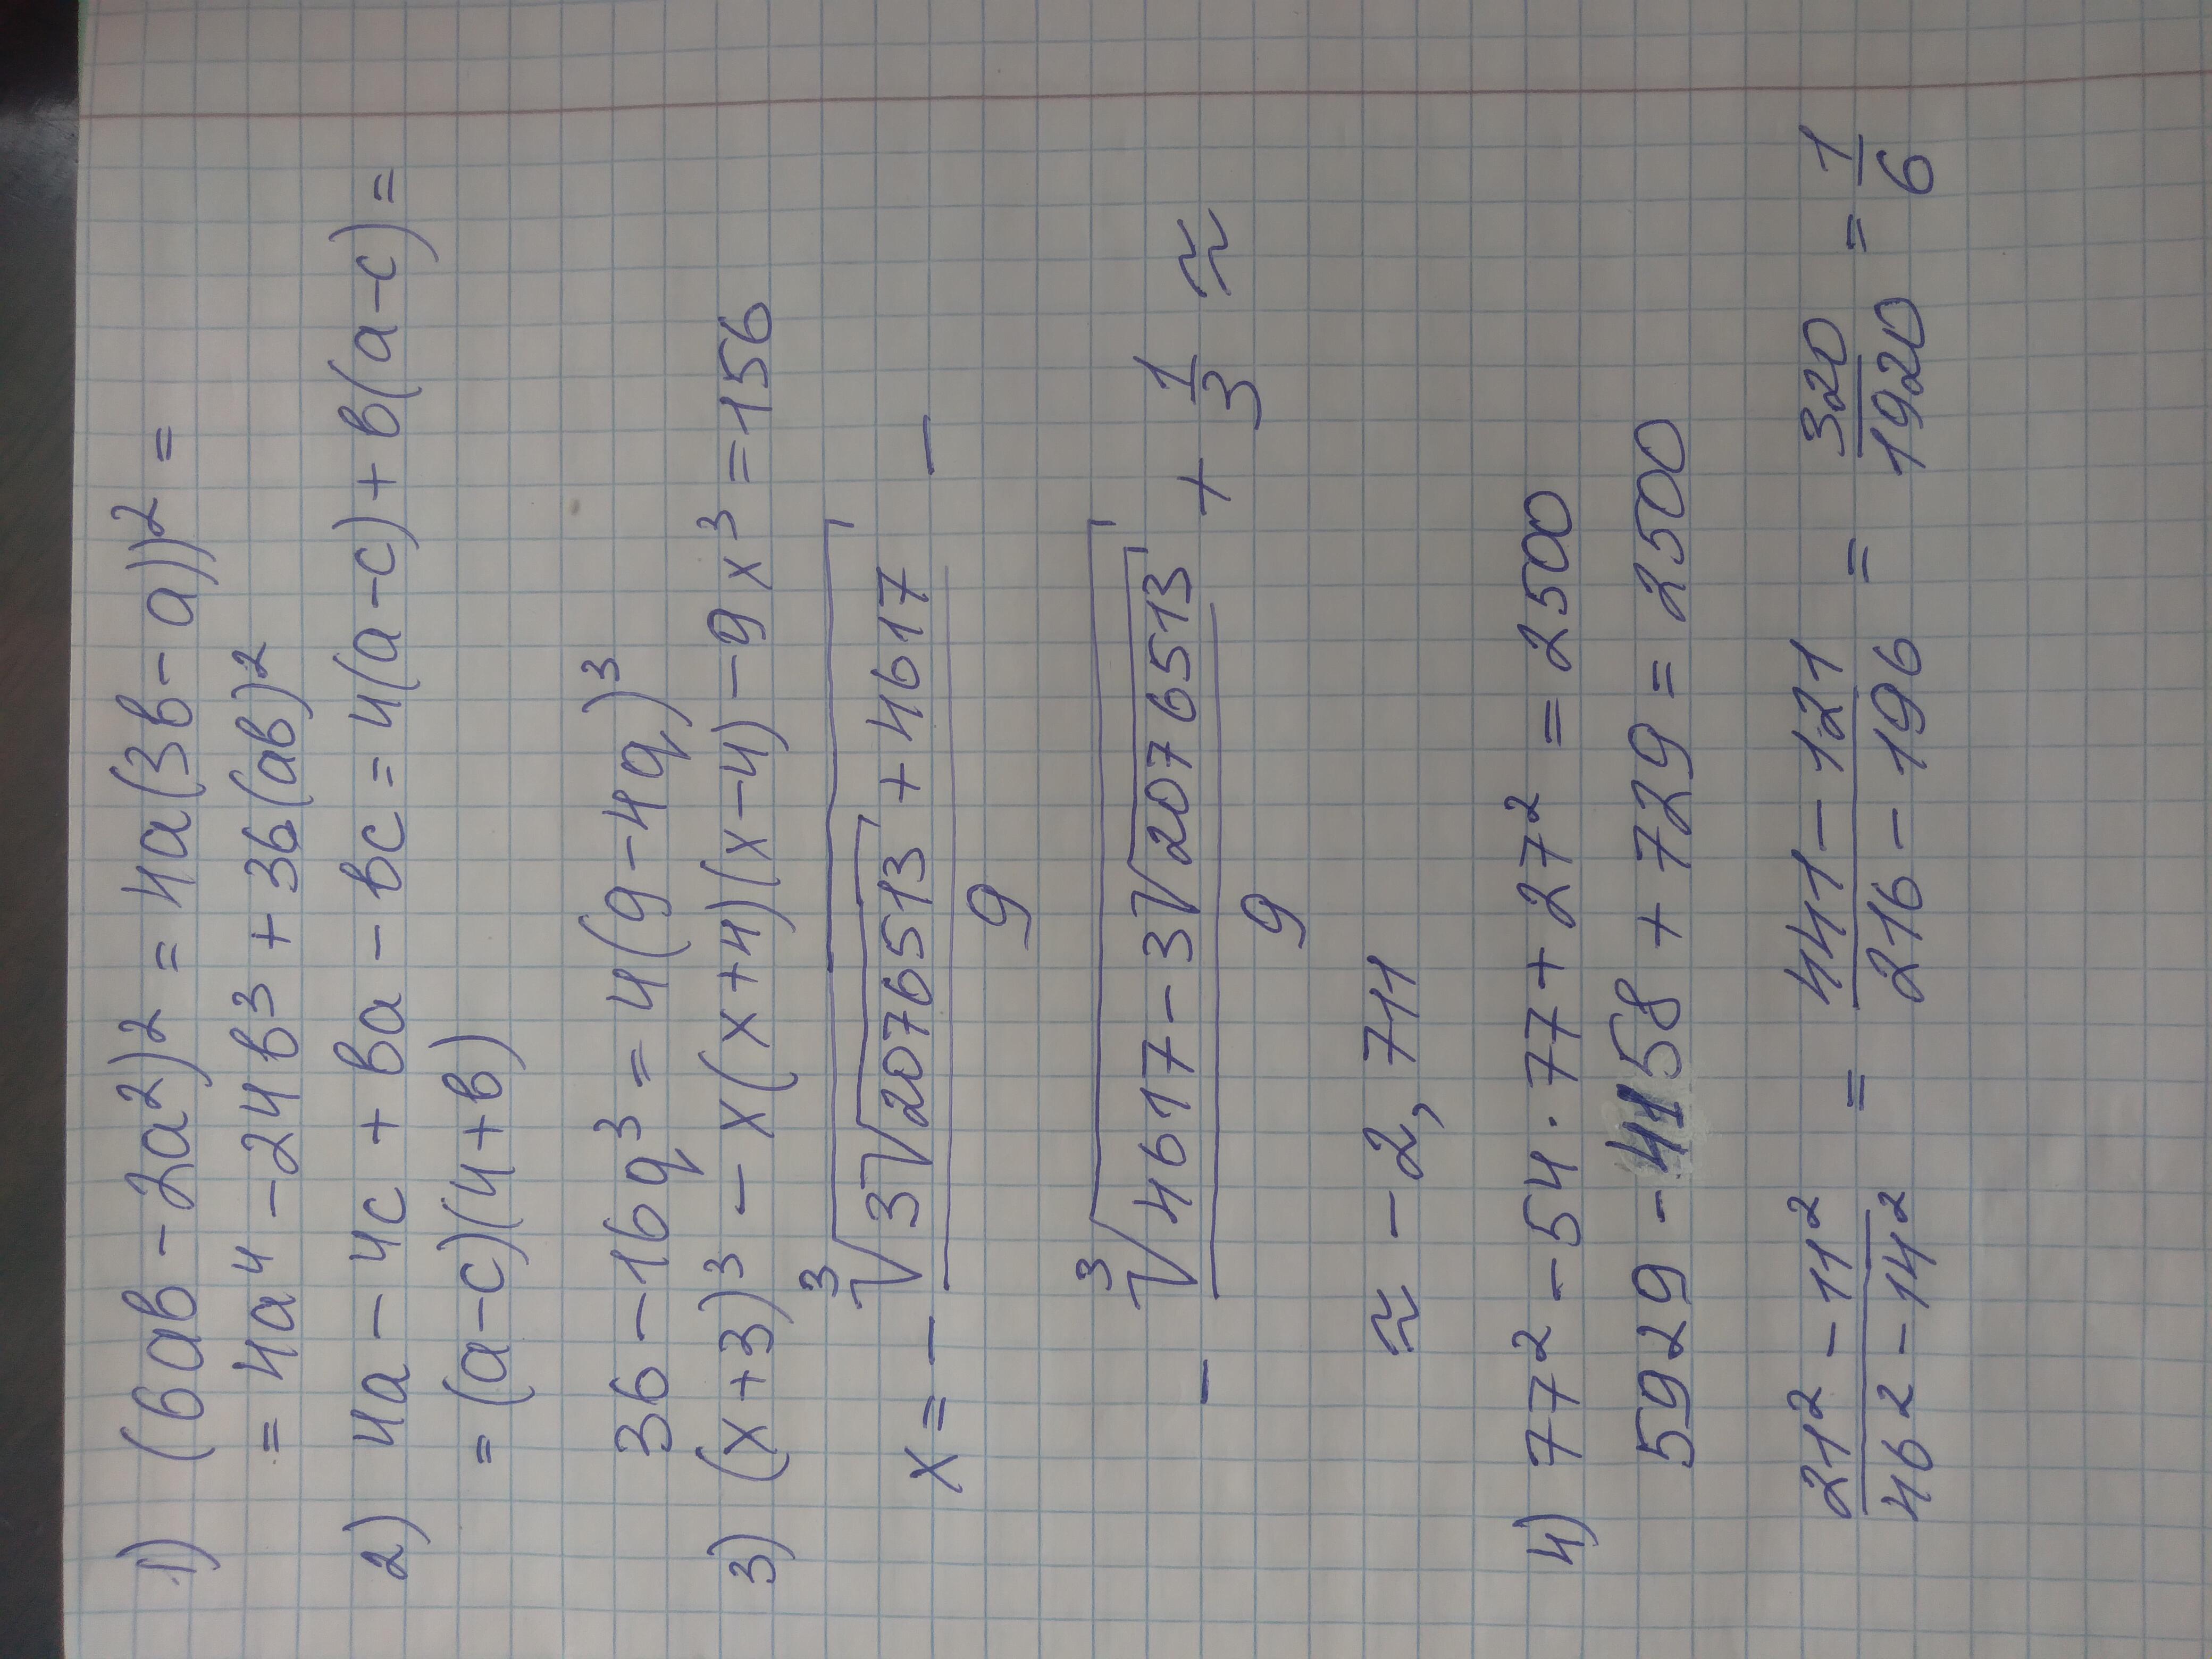 1) (6ab - 2a²)² = 4a(3b - a))² =
= 4a⁴ - 24b³ + 36(ab)²
2) 4a - 4c + ba - bc = 4(a-c) + b(a-c) =
= (a-c)(4+b)
36 - 16q³ = 4(9 - 4q)³
3) (x+3)³ - x(x+4)(x-4) - 9x³ = 156
x = - ∛(3√2076513 + 4617) / 9 -
- ∛(4617 - 3√2076513) / 9 + 1/3 ≈
≈ -2,711
4) 77² - 54 · 77 + 27² = 2500
5929 - 4158 + 729 = 2500
(21² - 11²) / (462 - 14²) = (441 - 121) / (216 - 196) = 320/1920 = 1/6